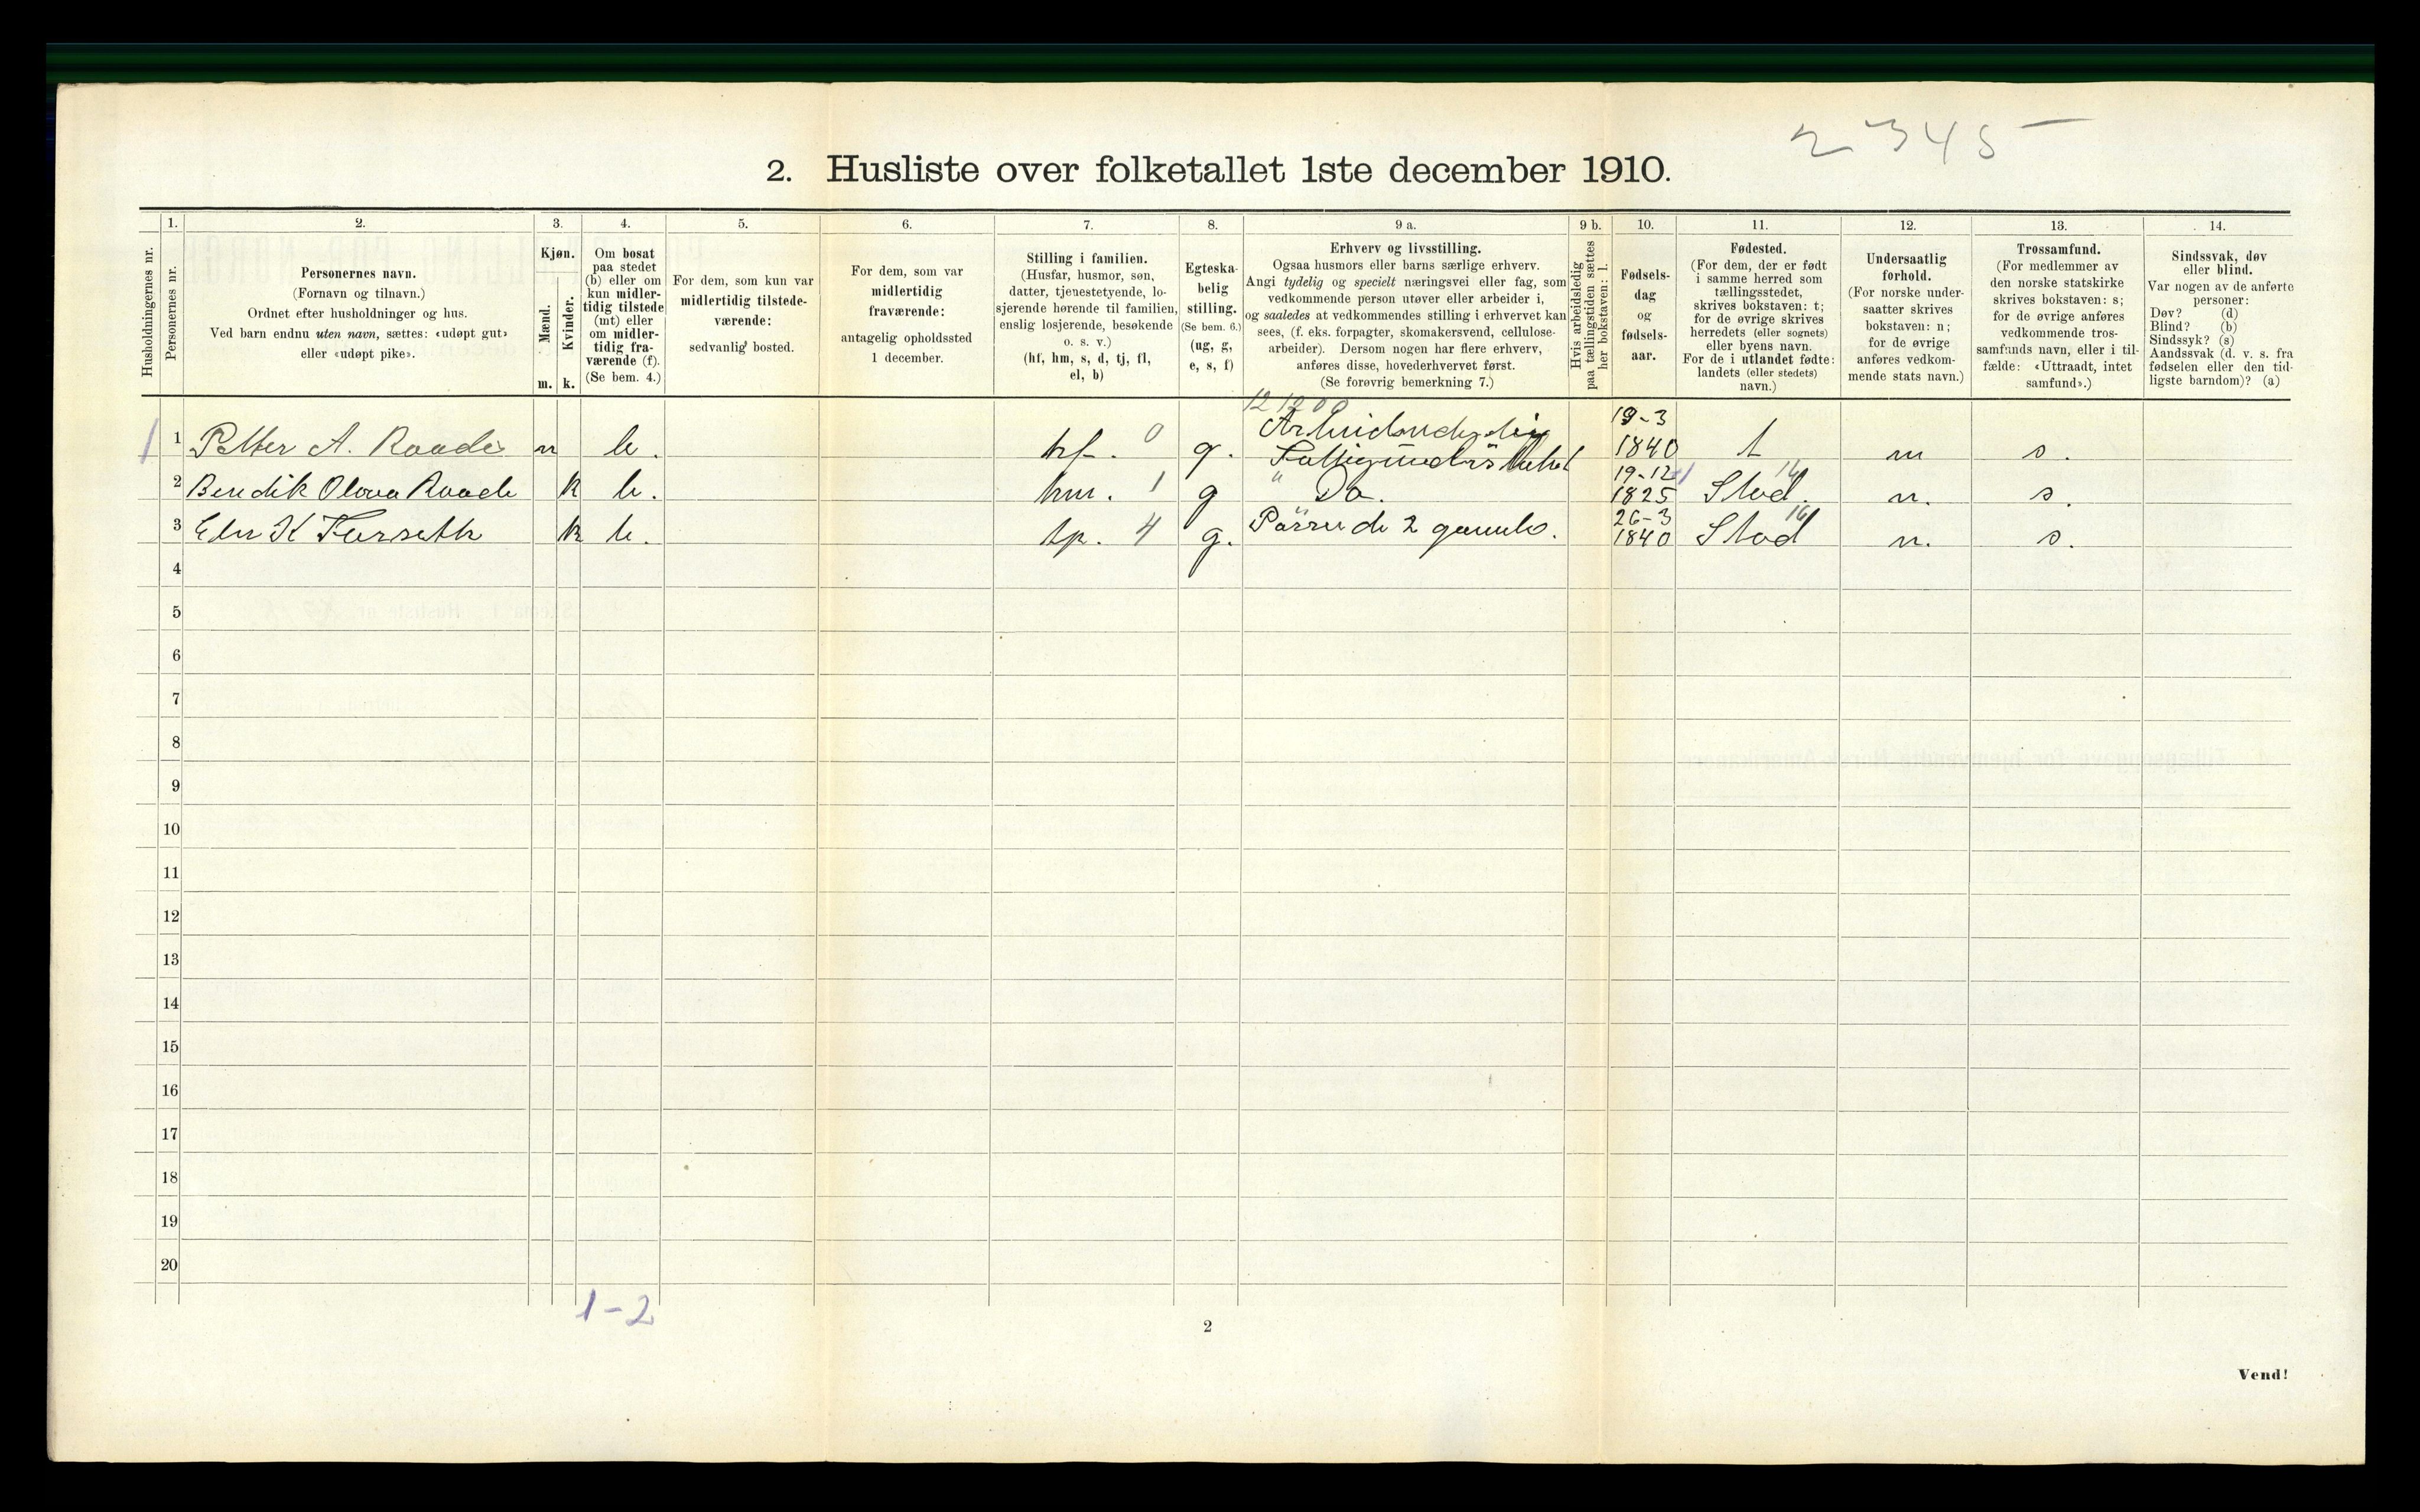 2 3 4 5 —
2. Husliste over folketallet 1ste december 1910.
1. 2. 3. 4. 5. 6. 7. 8. 9 a. 9 b. 10. 11. 12. 13. 14.
Husholdningernes nr.
Personernes nr.
Personernes navn.
(Fornavn og tilnavn.)
Ordnet efter husholdninger og hus.
Ved barn endnu uten navn, sættes: «udøpt gut»
eller «udøpt pike».
Kjøn.
Mænd.
Kvinder.
m. k.
Om bosat
paa stedet
(b) eller om
kun midler-
tidig tilstede
(mt) eller
om midler-
tidig fra-
værende (f).
(Se bem. 4.)
For dem, som kun var
midlertidig tilstede-
værende:
sedvanlig bosted.
For dem, som var
midlertidig
fraværende:
antagelig opholdssted
1 december.
Stilling i familien.
(Husfar, husmor, søn,
datter, tjenestetyende, lo-
sjerende hørende til familien,
enslig losjerende, besøkende
o. s. v.)
(hf, hm, s, d, tj, fl,
el, b)
Egteska-
belig
stilling.
(Se bem. 6.)
(ug, g,
e, s, f)
Erhverv og livsstilling.
Ogsaa husmors eller barns særlige erhverv.
Angi tydelig og specielt næringsvei eller fag, som
vedkommende person utøver eller arbeider i,
og saaledes at vedkommendes stilling i erhvervet kan
sees, (f. eks. forpagter, skomakersvend, cellulose-
arbeider). Dersom nogen har flere erhverv,
anføres disse, hovederhvervet først.
(Se forøvrig bemerkning 7.)
Hvis arbeidsledig
paa tællingstiden sættes
her bokstaven: l.
Fødsels-
dag
og
fødsels-
aar.
Fødested.
(For dem, der er født
i samme herred som
tællingsstedet,
skrives bokstaven: t;
for de øvrige skrives
herredets (eller sognets)
eller byens navn.
For de i utlandet fødte:
landets (eller stedets)
navn.)
Undersaatlig
forhold.
(For norske under-
saatter skrives
bokstaven: n;
for de øvrige
anføres vedkom-
mende stats navn.)
Trossamfund.
(For medlemmer av
den norske statskirke
skrives bokstaven: s;
for de øvrige anføres
vedkommende tros-
samfunds navn, eller i til-
fælde: «Uttraadt, intet
samfund».)
Sindssvak, døv
eller blind.
Var nogen av de anførte
personer:
Døv? (d)
Blind? (b)
Sindssyk? (s)
Aandssvak (d. v. s. fra
fødselen eller den tid-
ligste barndom)? (a)
12 12 00
1 1 Petter A. Raade m b. hf. 0 g. 19-3 1840 t n s.
2 Bendik Olova Raade k b. hm. 1 g " Do. 19-12 1825 Stod. 14 n. s.
3 K k b. 4 g. de 2 gamle. 26-3 1840 Stod 14 n. s.
4
5
6
7
8
9
10
11
12
13
14
15
16
17
18
19
20
1-2
2
Vend!